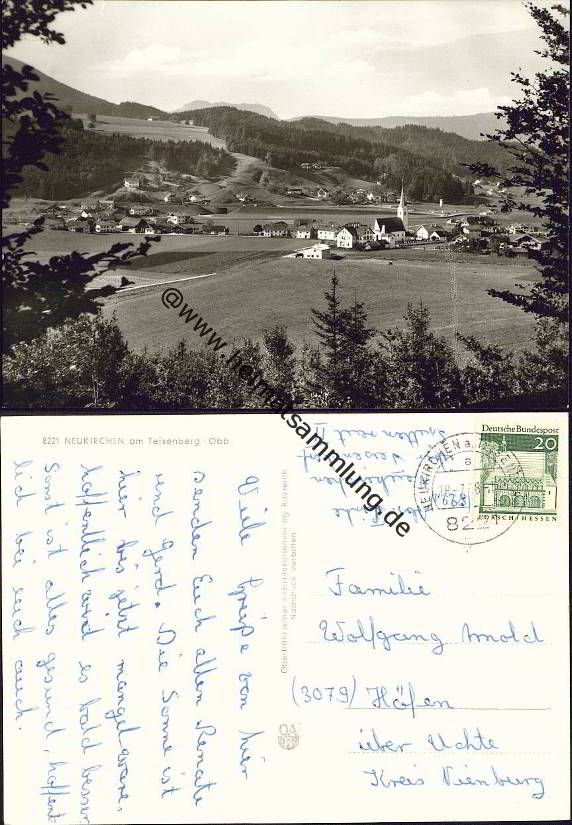 @www.heimatsammlung.de
8221 NEUKIRCHEN am Teisenberg · Obb
Viele Grüße von hier
senden Euch allen Renate
und Gerd. Die Sonne ist
hier bis jetzt mangelware,
hoffentlich wird es bald besser
Sonst ist alles gesund, hoffent
lich bei euch auch.
Nachdruck verboten
Deutsche Bundespost
20
LORSCH/HESSEN
NEUKIRCHEN a.
a
8221
Familie
Wolfgang Arnold
(3079) Höfen
über Uchte
Kreis Nienburg